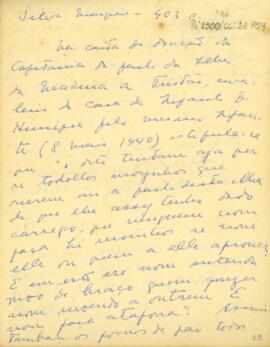 Silva Marques - 403
Na carta de doação da
Capitania de parte da Ilha
da Madeira a Tristão, cava-
leiro da casa do Infante D.
Henrique pelo mesmo Infan-
te (8 maio 1440) estipula-se
que "o dito tristam aja per
sy todollos moynhos que
ouverem em a parte desta ilha
de que lhe assy tenho dado
carrego, que ninguem nom
faça hi moinhos se nom
elle ou quem a elle aprouver
E em esto se nom entenda
moo de braço quem quyser
nom moendo a outrem E
nom faça atafona". Assim
tambem os fornos de pão todos